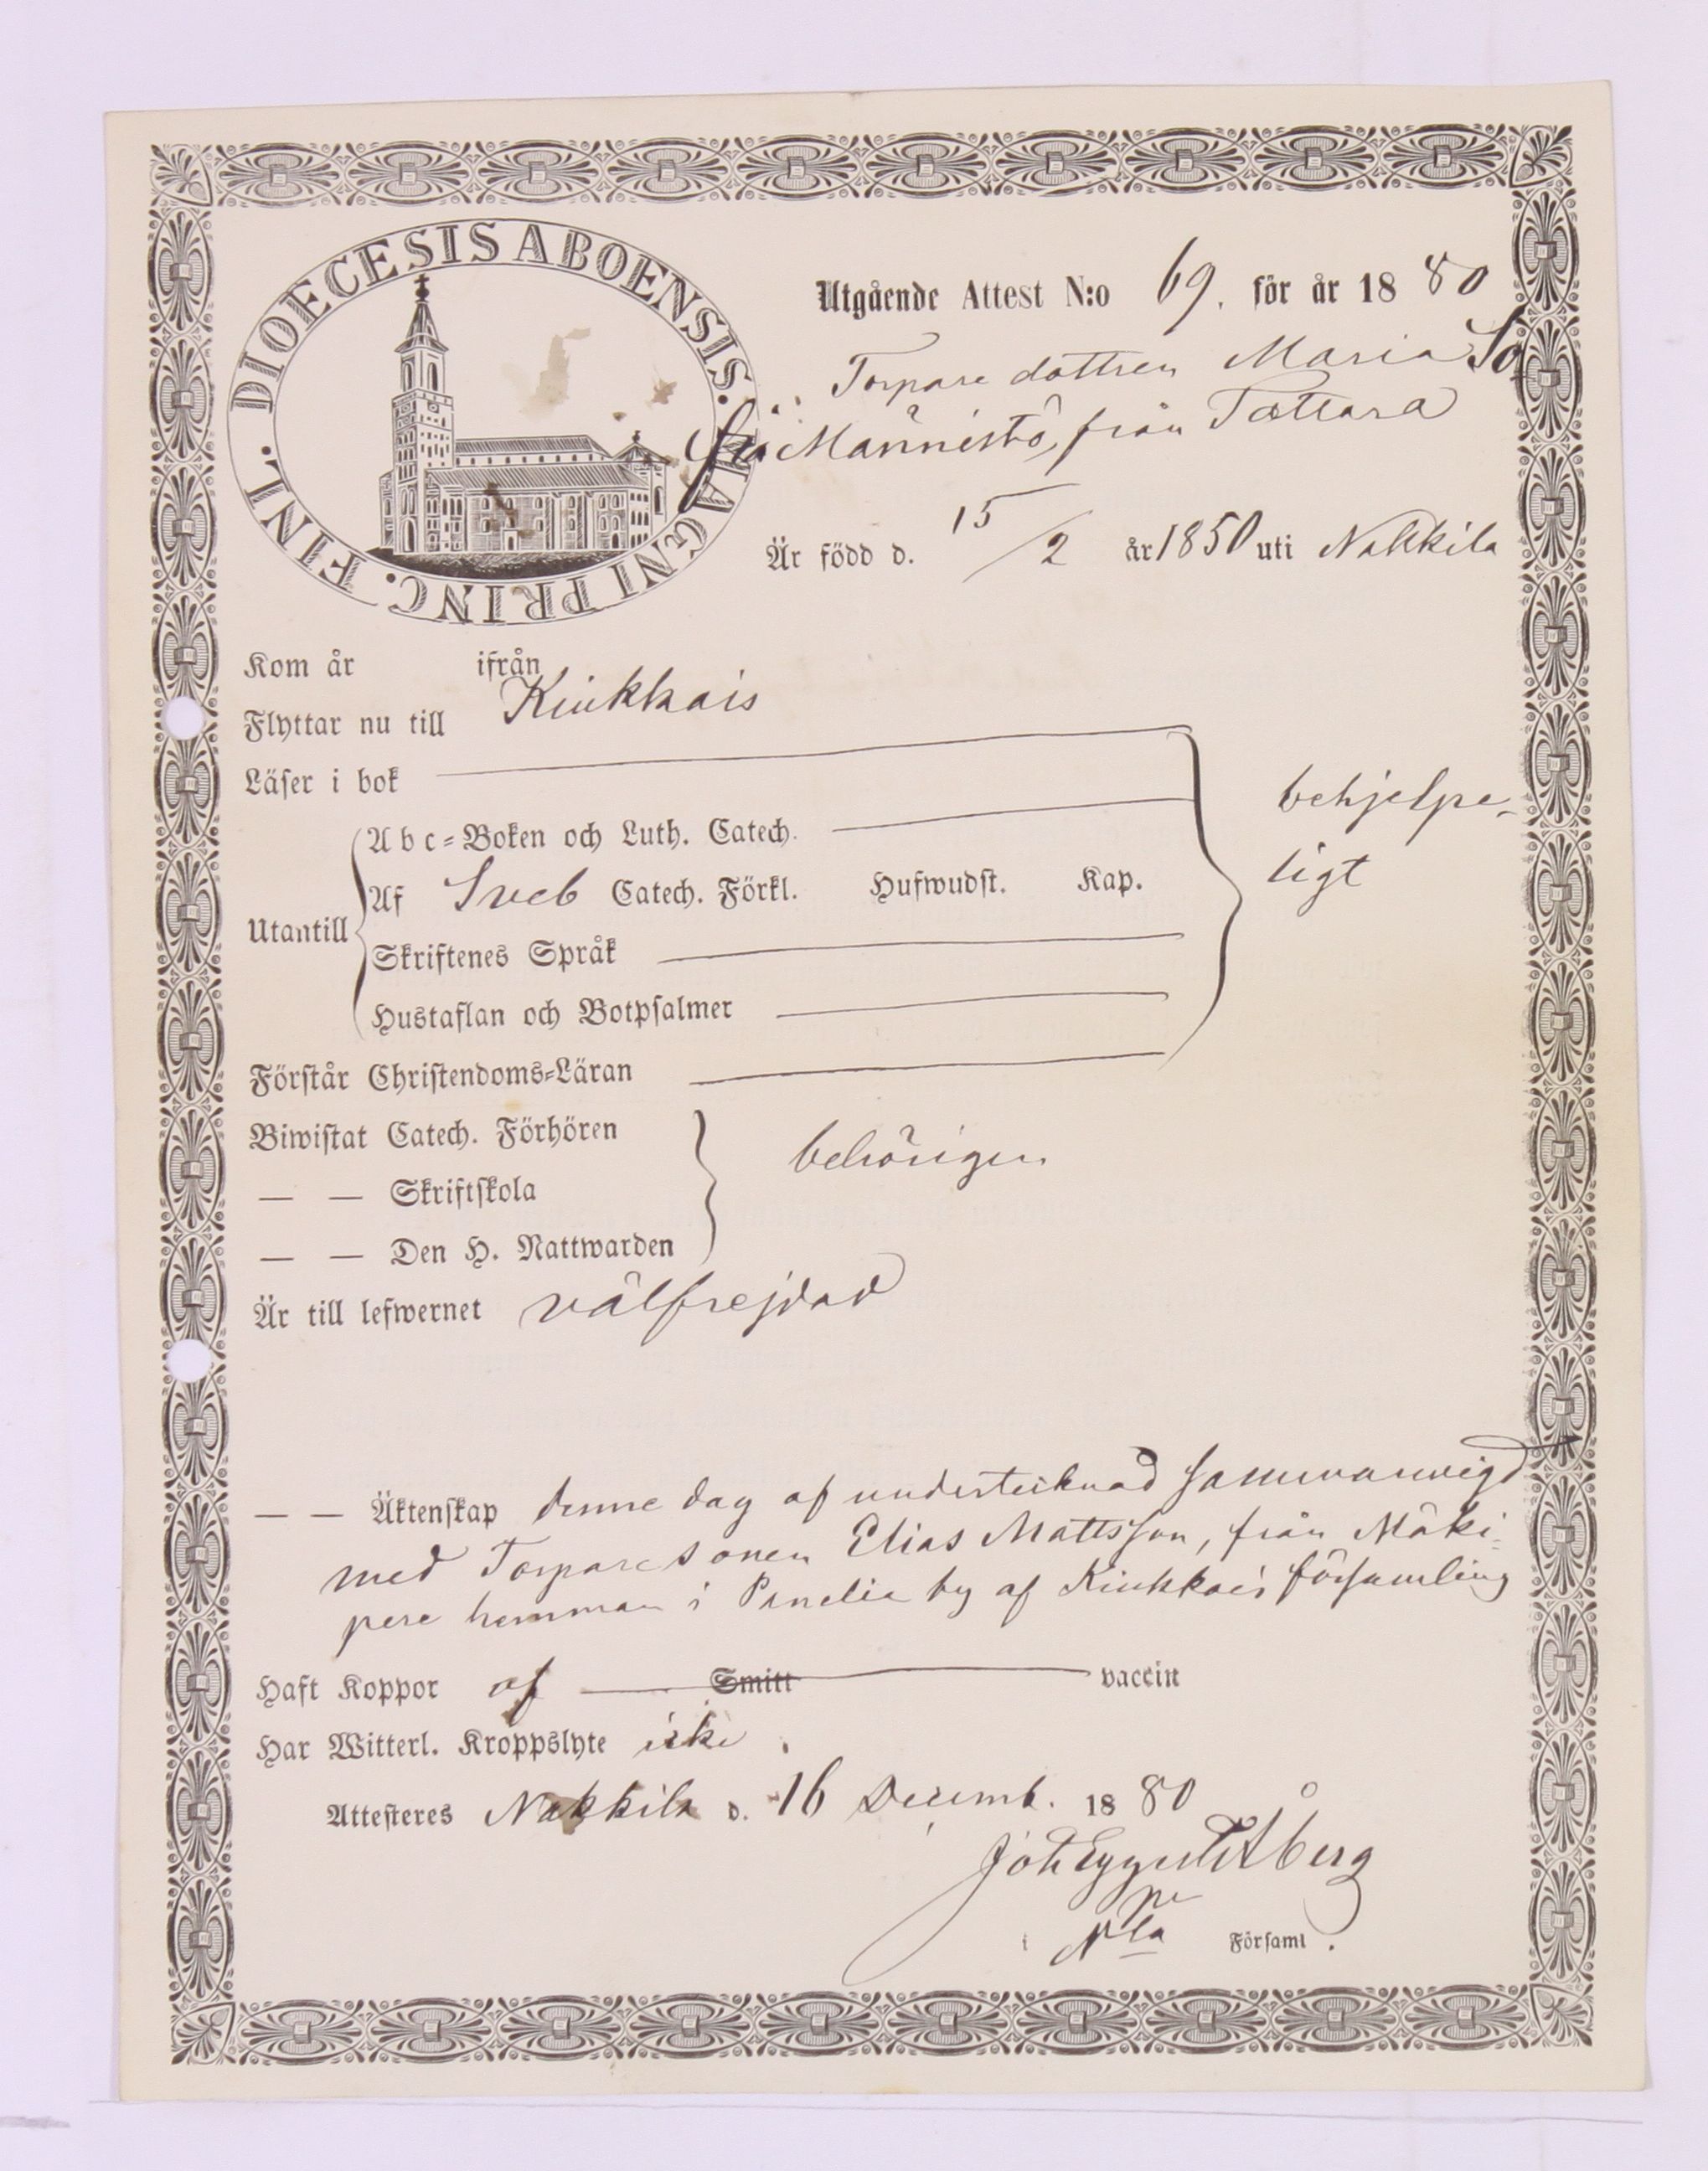 DIOECESIS ABOENSIS. MAGNI PRINC. FINL.
Utgående Attest N:o 69. för år 1880
Torpare dottren Maria So-
fia Männistö, från Tattara
Är född d. 15/2 år 1850 uti Nakkila
Kom år ifrån
Flyttar nu till Kiukkais
Läser i bok
behjelpe-
ligt
Abc-Boken och Luth. Catech.
Af Sveb Catech. Förkl. Hufwudst. Kap.
Utantill
Skriftenes Språk
Hustaflan och Botpsalmer
Förstår Christendoms-Läran
Biwistat Catech. Förhören
behörigen
— — Skriftskola
— — Den H. Nattwarden
Är till lefwernet välfrejdad
— — Äktenskap denne dag af undertecknad sammanvigd
med Torparesonen Elias Mattsson, från Mäki-
pere hemman i Panelia by af Kiukkais församling
Haft Koppor af Smitt vaccin
Har Witterl. Kroppslyte icke
Attesteres Nakkila d. 16 Decemb. 1880
Joh Åberg
i Nla Församl.